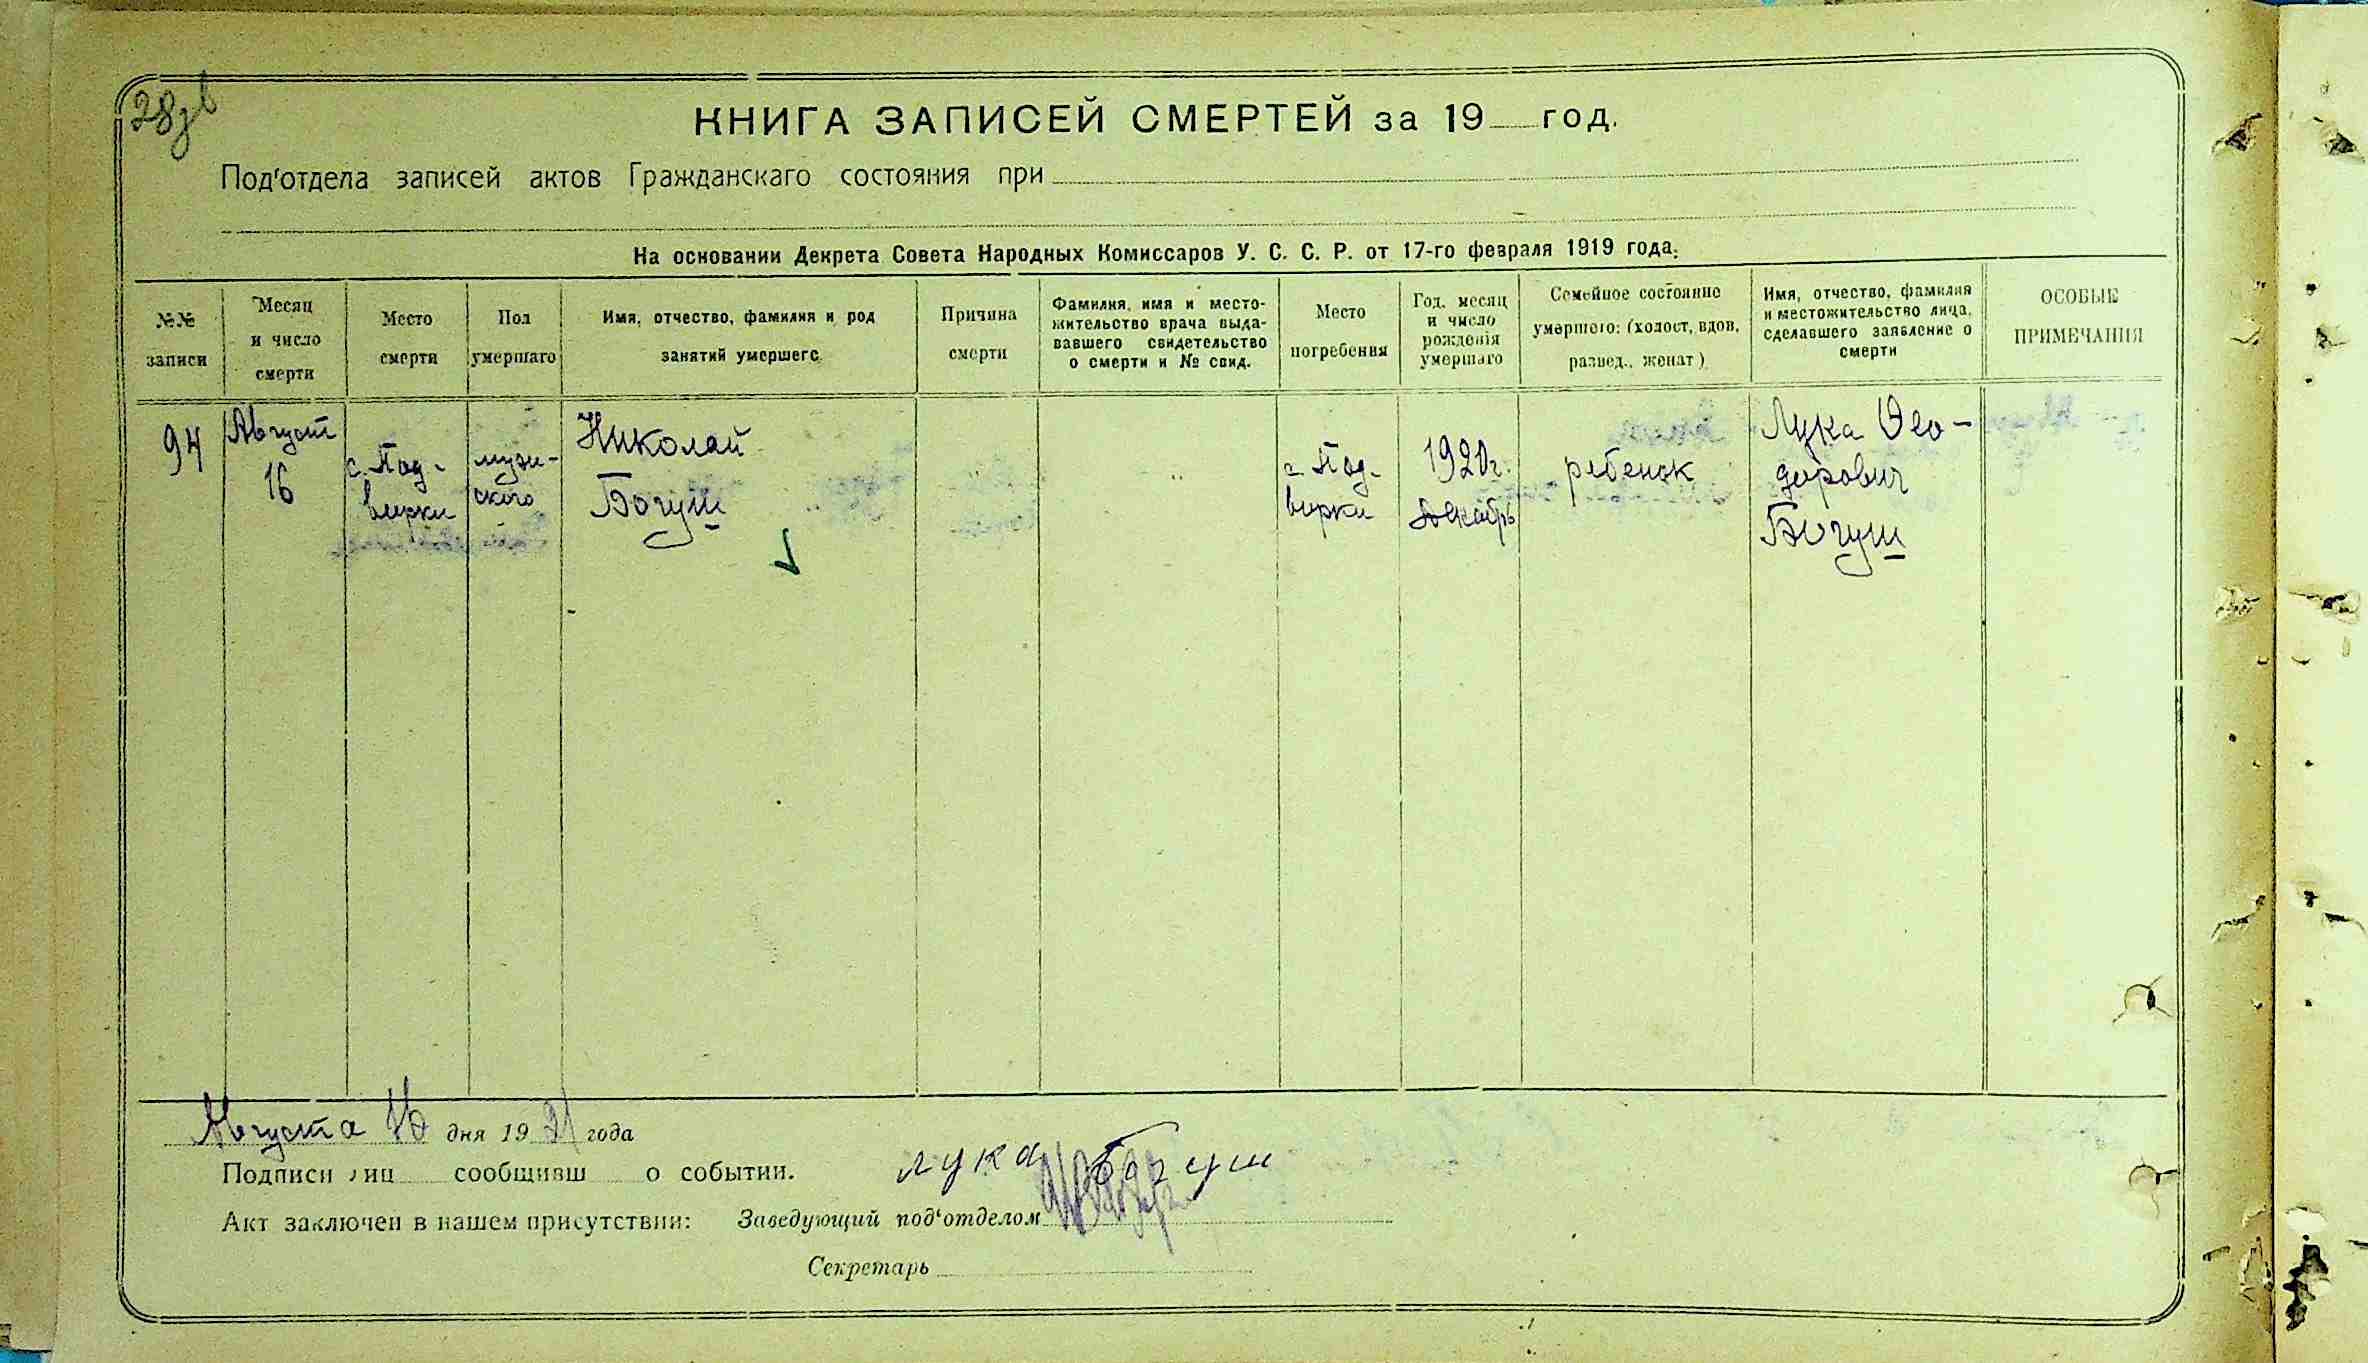 28зв
КНИГА ЗАПИСЕЙ СМЕРТЕЙ за 19 год.
Под'отдела записей актов Гражданскаго состояния при
На основании Декрета Совета Народных Комиссаров У. С. С. Р. от 17-го февраля 1919 года.
№№
записи
Месяц
и число
смерти
Место
смерти
Пол
умершаго
Имя, отчество, фамилия и род
занятий умершего
Причина
смерти
Фамилия, имя и место-
жительство врача выда-
вавшего свидетельство
о смерти и № свид.
Место
погребения
Год, месяц
и число
рождения
умершаго
Семейное состояние
умершого: (холост, вдов,
развед., женат)
Имя, отчество, фамилия
и местожительство лица,
сделавшего заявление о
смерти
ОСОБЫЕ
ПРИМЕЧАНИЯ
94
Август
16
с. Под-
вирки
мужи-
ского
Николай
Богуш
с. Под-
вирки
1920 г.
декабрь
ребенок
Лука Фео-
дорович
Богуш
Августа 16 дня 1921 года
Подписи лиц сообщивш о событии. лука Богуш
Акт заключен в нашем присутствии: Заведующий под'отделом
Секретарь